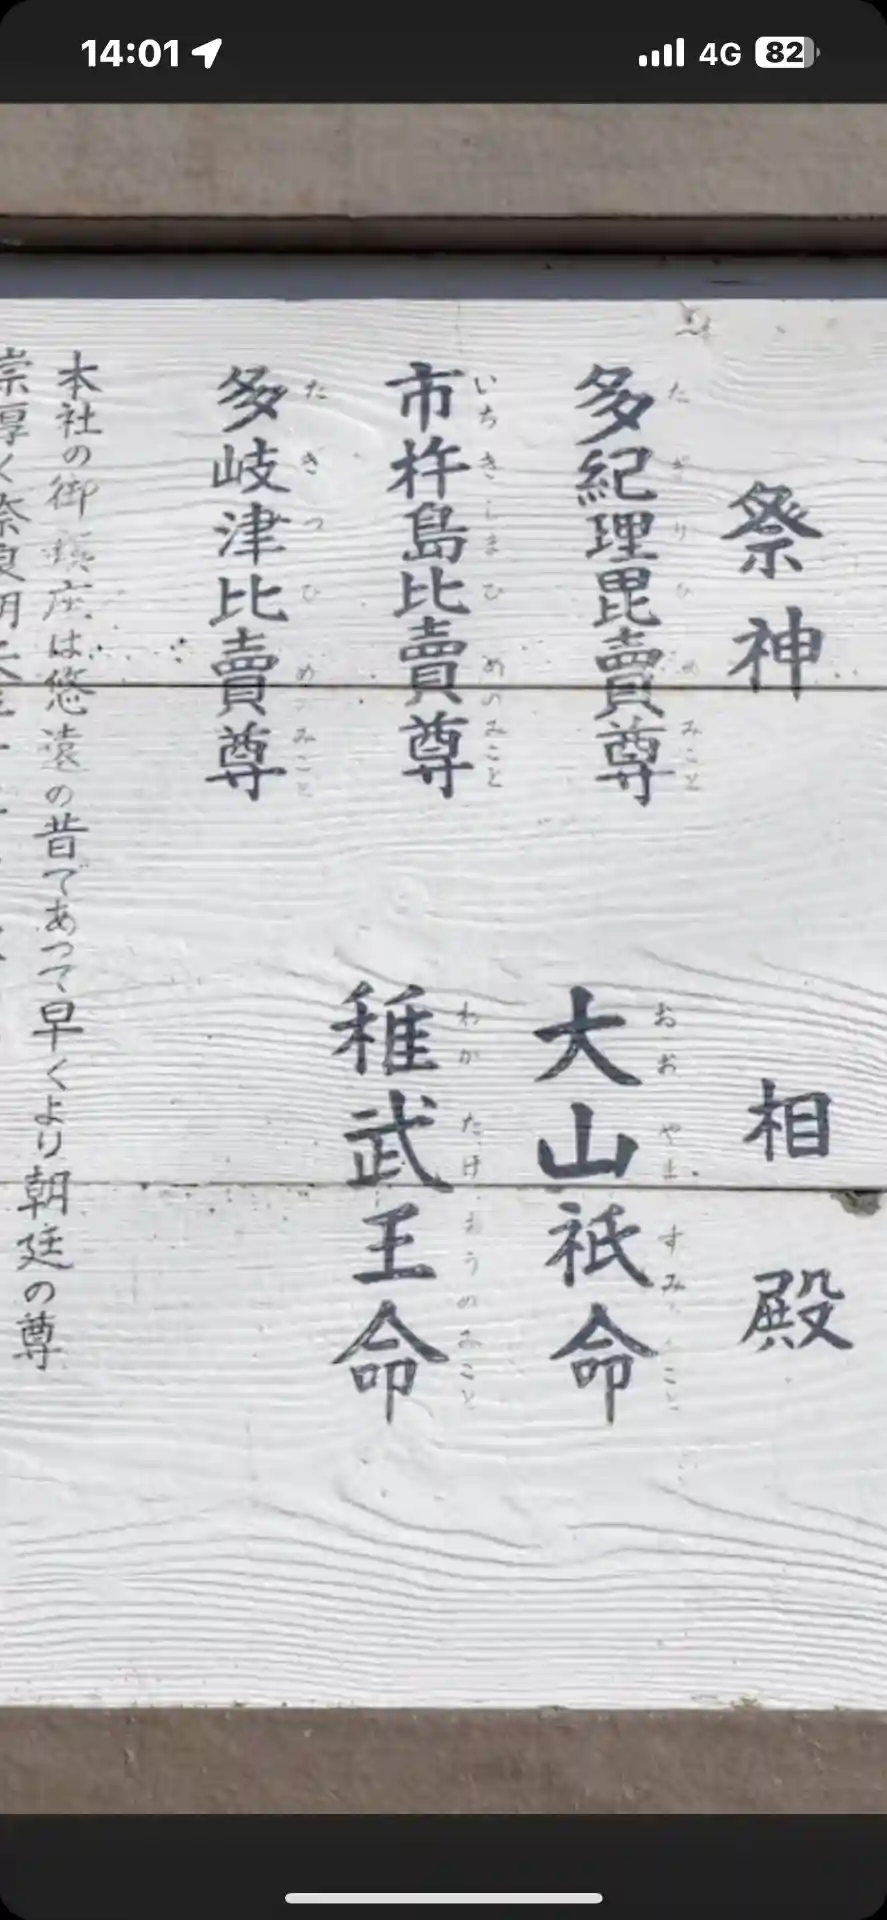 14:01
4G
82
祭神
多紀理毘賣尊
たぎりひめみこと
市杵島比賣尊
いちきしまひめのみこと
多岐津比賣尊
たきつひめのみこと
相殿
大山祇命
おおやますみ こと
稚武王命
わかたけおうのみこと
本社の御鎮座は悠遠の昔であって早くより朝廷の尊
崇厚く奈良朝